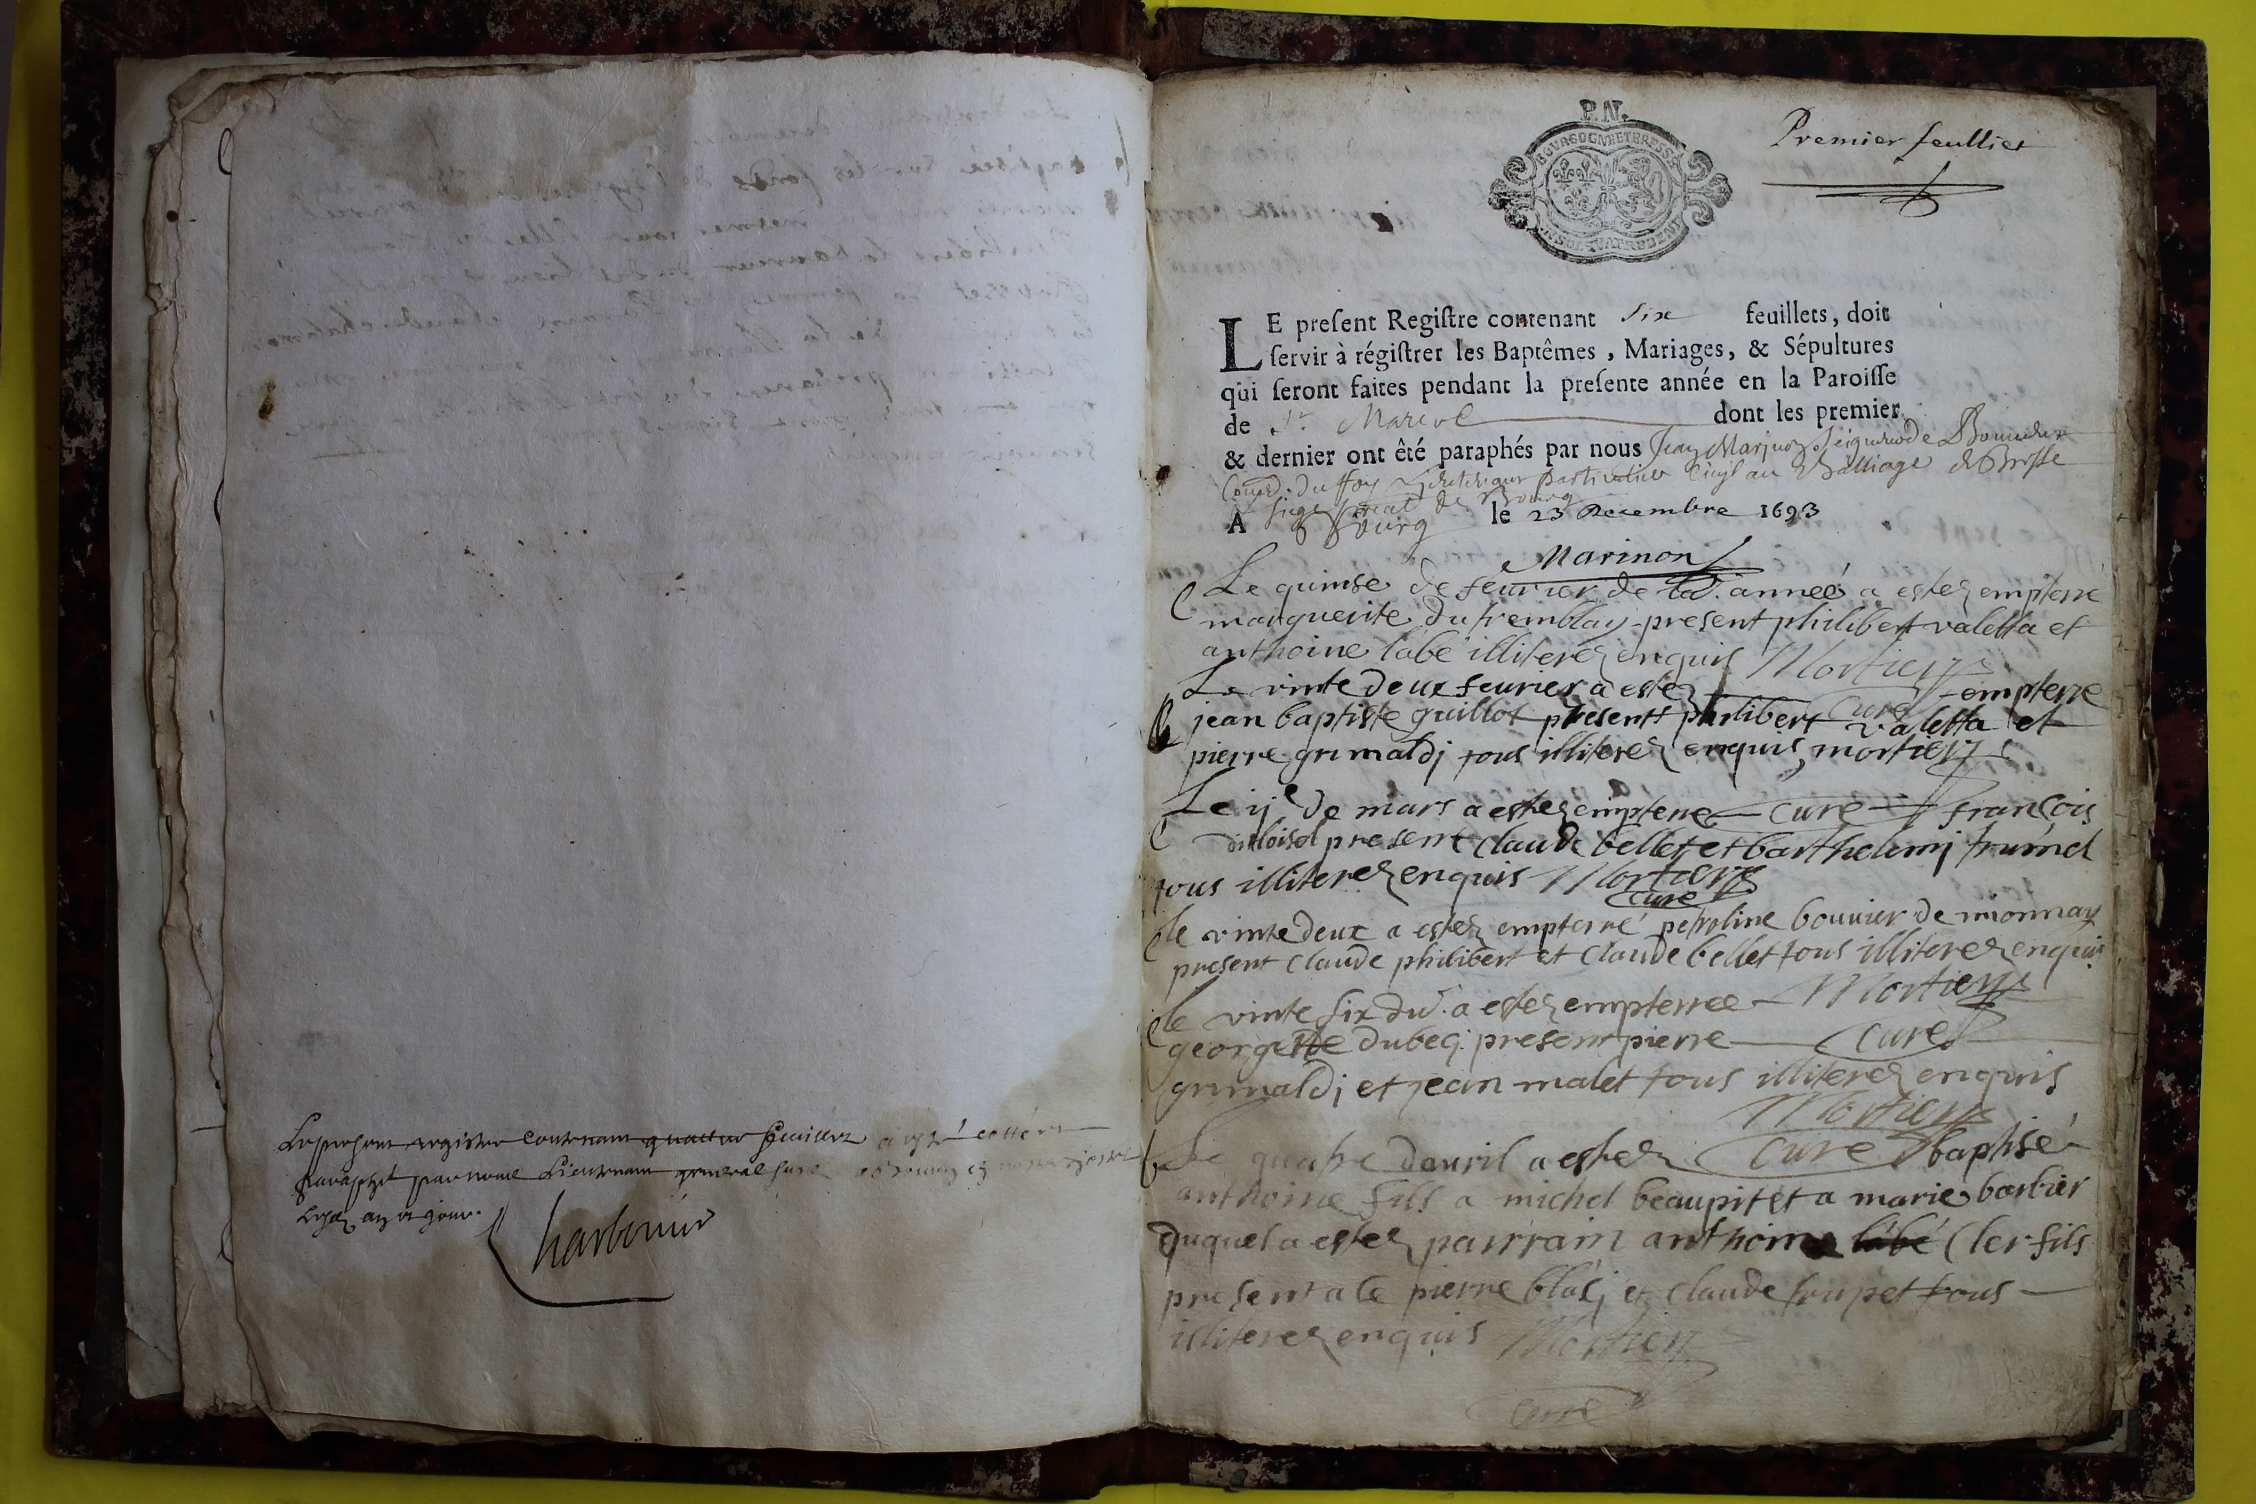 Le present registre contenant quattre feuillets a esté cotté et
paraphé par nous Lieutenant general
Charbonnier
P.N.
BOURGOGNE ET BRESSE
Premier feulliet
LE preſent Regiſtre contenant six feuillets, doit
ſervir à régiſtrer les Baptêmes, Mariages, & Sépultures
qui ſeront faites pendant la preſente année en la Paroiſſe
de St Marcel dont les premier
& dernier ont êté paraphés par nous Jean Marinon Seigneur de
Conser. du Roy Lieutenant particulier Civil au Balliage de Bresse
siege de Bourg
A Bourg le 23 Decembre 1693
Marinon
Le quinse de feurier de lad. anneé a estez empterré
marguerite du tremblay present philibert valetta et
anthoine labé illiterez enquis Mortier
Le vinte deux feurier a estez empterre
curé
jean baptiste guillot present philibert valetta et
pierre grimaldj tous illiterez enquis mortier
Le ije de mars a estez empterre curé françois
dit loisel present claude bellet et barthelemj
tous illiterez enquis Mortier
curé
le vinte deux a estez empterré petroline bouuier de mionnay
present claude philibert et claude bellet tous illiterez enquis
le vinte six du. a estez empterree Mortier
georgette dubeq present pierre curé
grimaldj et jean malet tous illiterez enquis
Mortier
Le quatre dauril a estez curé baptisé
anthoine fils a michel beaupitet a marie barbier
duquel a estez parrain anthoine labé cler fils
present a ce pierre blasj et claude tous
illiterez enquis Mortier
curé